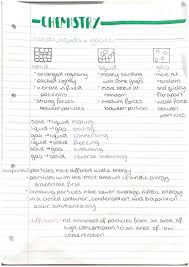 CHEMISTRY
solids, liquids + gases
solid liquid gas
• arranged regularly • mostly touching • move at
packed tightly with some gaps random
• vibrate in fixed • move about at and
positions random quickly
• strong forces • medium forces • weak forces
between particles between particles between particles
solid → liquid melting
liquid → gas
gas → liquid
liquid → solid freezing
solid → gas
gas → solid reverse
• particles have different kinetic energy
• particles with the most amount of kinetic energy
evaporate first
• remaining particles have lower average energy
in a closed container, condensation and evaporation
occur simultaneously
diffusion: net movement of particles from an area of
high concentration to an area of low
concentration